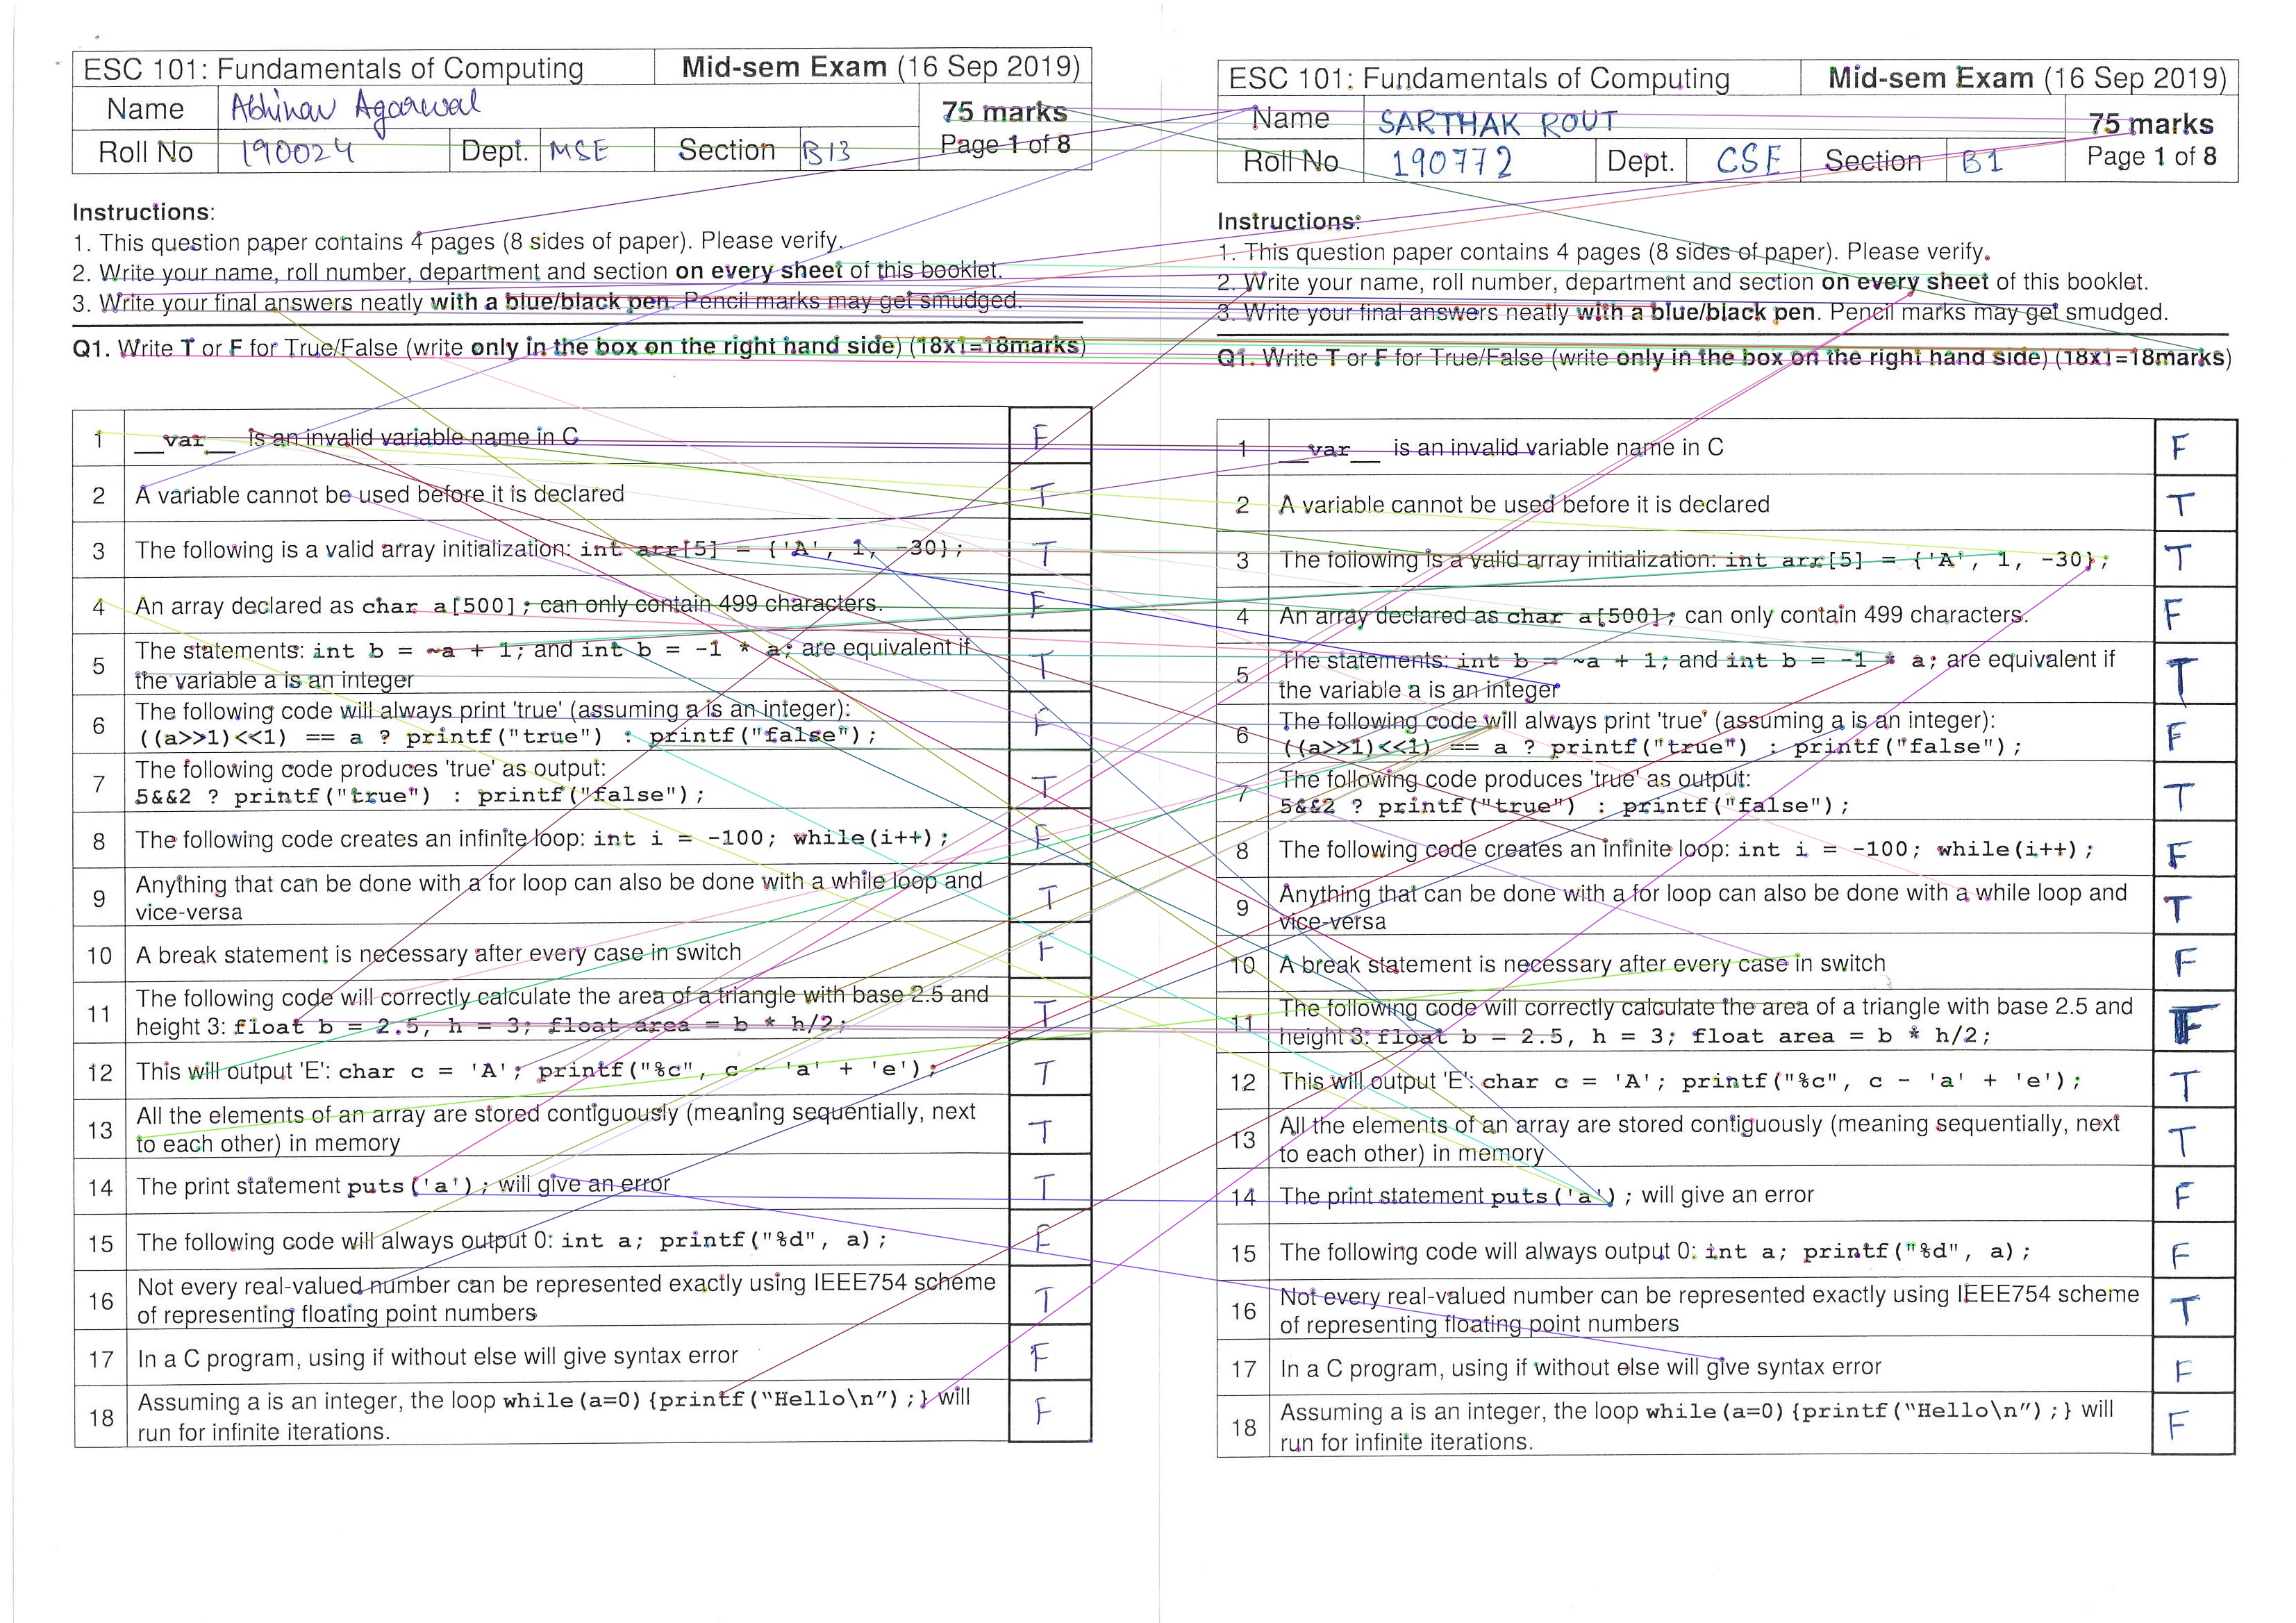 ESC 101: Fundamentals of Computing Mid-sem Exam (16 Sep 2019)
Name Abhinav Agarwal 75 marks
Roll No 190024 Dept. MSE Section B13 Page 1 of 8
Instructions:
1. This question paper contains 4 pages (8 sides of paper). Please verify.
2. Write your name, roll number, department and section on every sheet of this booklet.
3. Write your final answers neatly with a blue/black pen. Pencil marks may get smudged.
Q1. Write T or F for True/False (write only in the box on the right hand side) (18x1=18marks)
1 __var__ is an invalid variable name in C F
2 A variable cannot be used before it is declared T
3 The following is a valid array initialization: int arr[5] = {'A', 1, -30}; T
4 An array declared as char a[500]; can only contain 499 characters. F
5 The statements: int b = ~a + 1; and int b = -1 * a; are equivalent if T
the variable a is an integer
6 The following code will always print 'true' (assuming a is an integer): F
((a>>1)<<1) == a ? printf("true") : printf("false");
7 The following code produces 'true' as output: T
5&&2 ? printf("true") : printf("false");
8 The following code creates an infinite loop: int i = -100; while(i++); F
9 Anything that can be done with a for loop can also be done with a while loop and T
vice-versa
10 A break statement is necessary after every case in switch F
11 The following code will correctly calculate the area of a triangle with base 2.5 and T
height 3: float b = 2.5, h = 3; float area = b * h/2;
12 This will output 'E': char c = 'A'; printf("%c", c - 'a' + 'e'); T
13 All the elements of an array are stored contiguously (meaning sequentially, next T
to each other) in memory
14 The print statement puts('a'); will give an error T
15 The following code will always output 0: int a; printf("%d", a); F
16 Not every real-valued number can be represented exactly using IEEE754 scheme T
of representing floating point numbers
17 In a C program, using if without else will give syntax error F
18 Assuming a is an integer, the loop while(a=0){printf(“Hello\n”);} will F
run for infinite iterations.
ESC 101: Fundamentals of Computing Mid-sem Exam (16 Sep 2019)
Name SARTHAK ROUT 75 marks
Roll No 190772 Dept. CSE Section B1 Page 1 of 8
Instructions:
1. This question paper contains 4 pages (8 sides of paper). Please verify.
2. Write your name, roll number, department and section on every sheet of this booklet.
3. Write your final answers neatly with a blue/black pen. Pencil marks may get smudged.
Q1. Write T or F for True/False (write only in the box on the right hand side) (18x1=18marks)
1 __var__ is an invalid variable name in C F
2 A variable cannot be used before it is declared T
3 The following is a valid array initialization: int arr[5] = {'A', 1, -30}; T
4 An array declared as char a[500]; can only contain 499 characters. F
5 The statements: int b = ~a + 1; and int b = -1 * a; are equivalent if T
the variable a is an integer
6 The following code will always print 'true' (assuming a is an integer): F
((a>>1)<<1) == a ? printf("true") : printf("false");
7 The following code produces 'true' as output: T
5&&2 ? printf("true") : printf("false");
8 The following code creates an infinite loop: int i = -100; while(i++); F
9 Anything that can be done with a for loop can also be done with a while loop and T
vice-versa
10 A break statement is necessary after every case in switch F
11 The following code will correctly calculate the area of a triangle with base 2.5 and F
height 3: float b = 2.5, h = 3; float area = b * h/2;
12 This will output 'E': char c = 'A'; printf("%c", c - 'a' + 'e'); T
13 All the elements of an array are stored contiguously (meaning sequentially, next T
to each other) in memory
14 The print statement puts('a'); will give an error F
15 The following code will always output 0: int a; printf("%d", a); F
16 Not every real-valued number can be represented exactly using IEEE754 scheme T
of representing floating point numbers
17 In a C program, using if without else will give syntax error F
18 Assuming a is an integer, the loop while(a=0){printf(“Hello\n”);} will F
run for infinite iterations.